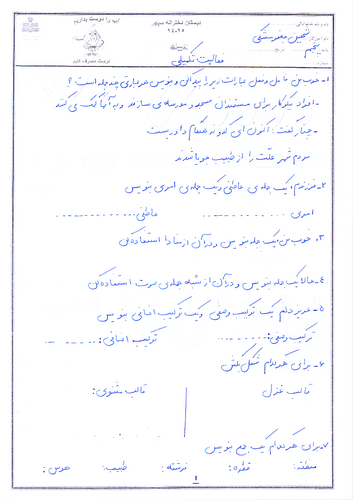 آب را درست بنوشیم
دبستان دخترانه سپهر
نام و نام خانوادگی:
۹۴-۹۵
پنجم
درست مصرف کنیم
فعالیت تکمیلی
۱- خوب من فعل عبارات زیر را پیدا کن و بنویس هر عبارتی چند جمله است؟
- افراد نیکوکار برای مستمندان مسجد و مدرسه می سازند و به آنها کمک می کنند
- چنار گفت: اکنون ای کدو نه هنگام داوریست
مردم شهر علت را از طبیب جویا شدند
۲- فرزندم، یک جمله ی عاطفی و یک جمله ی امری بنویس
امری .............. عاطفی ..............
۳- خوب من، یک جمله بنویس و در آن از منادا استفاده کن
۴- حالا یک جمله بنویس و در آن از شبه جمله ی صوت استفاده کن
۵- عزیز دلم یک ترکیب وصفی و یک ترکیب اضافی بنویس
ترکیب وصفی: ........ ترکیب اضافی: ........
۶- برای هر کدام شکل بکش
قالب غزل قالب مثنوی:
۷- برای هر کدام یک جمع بنویس
منطقه: قطره: فرشته: طبیب: هوس:
۱